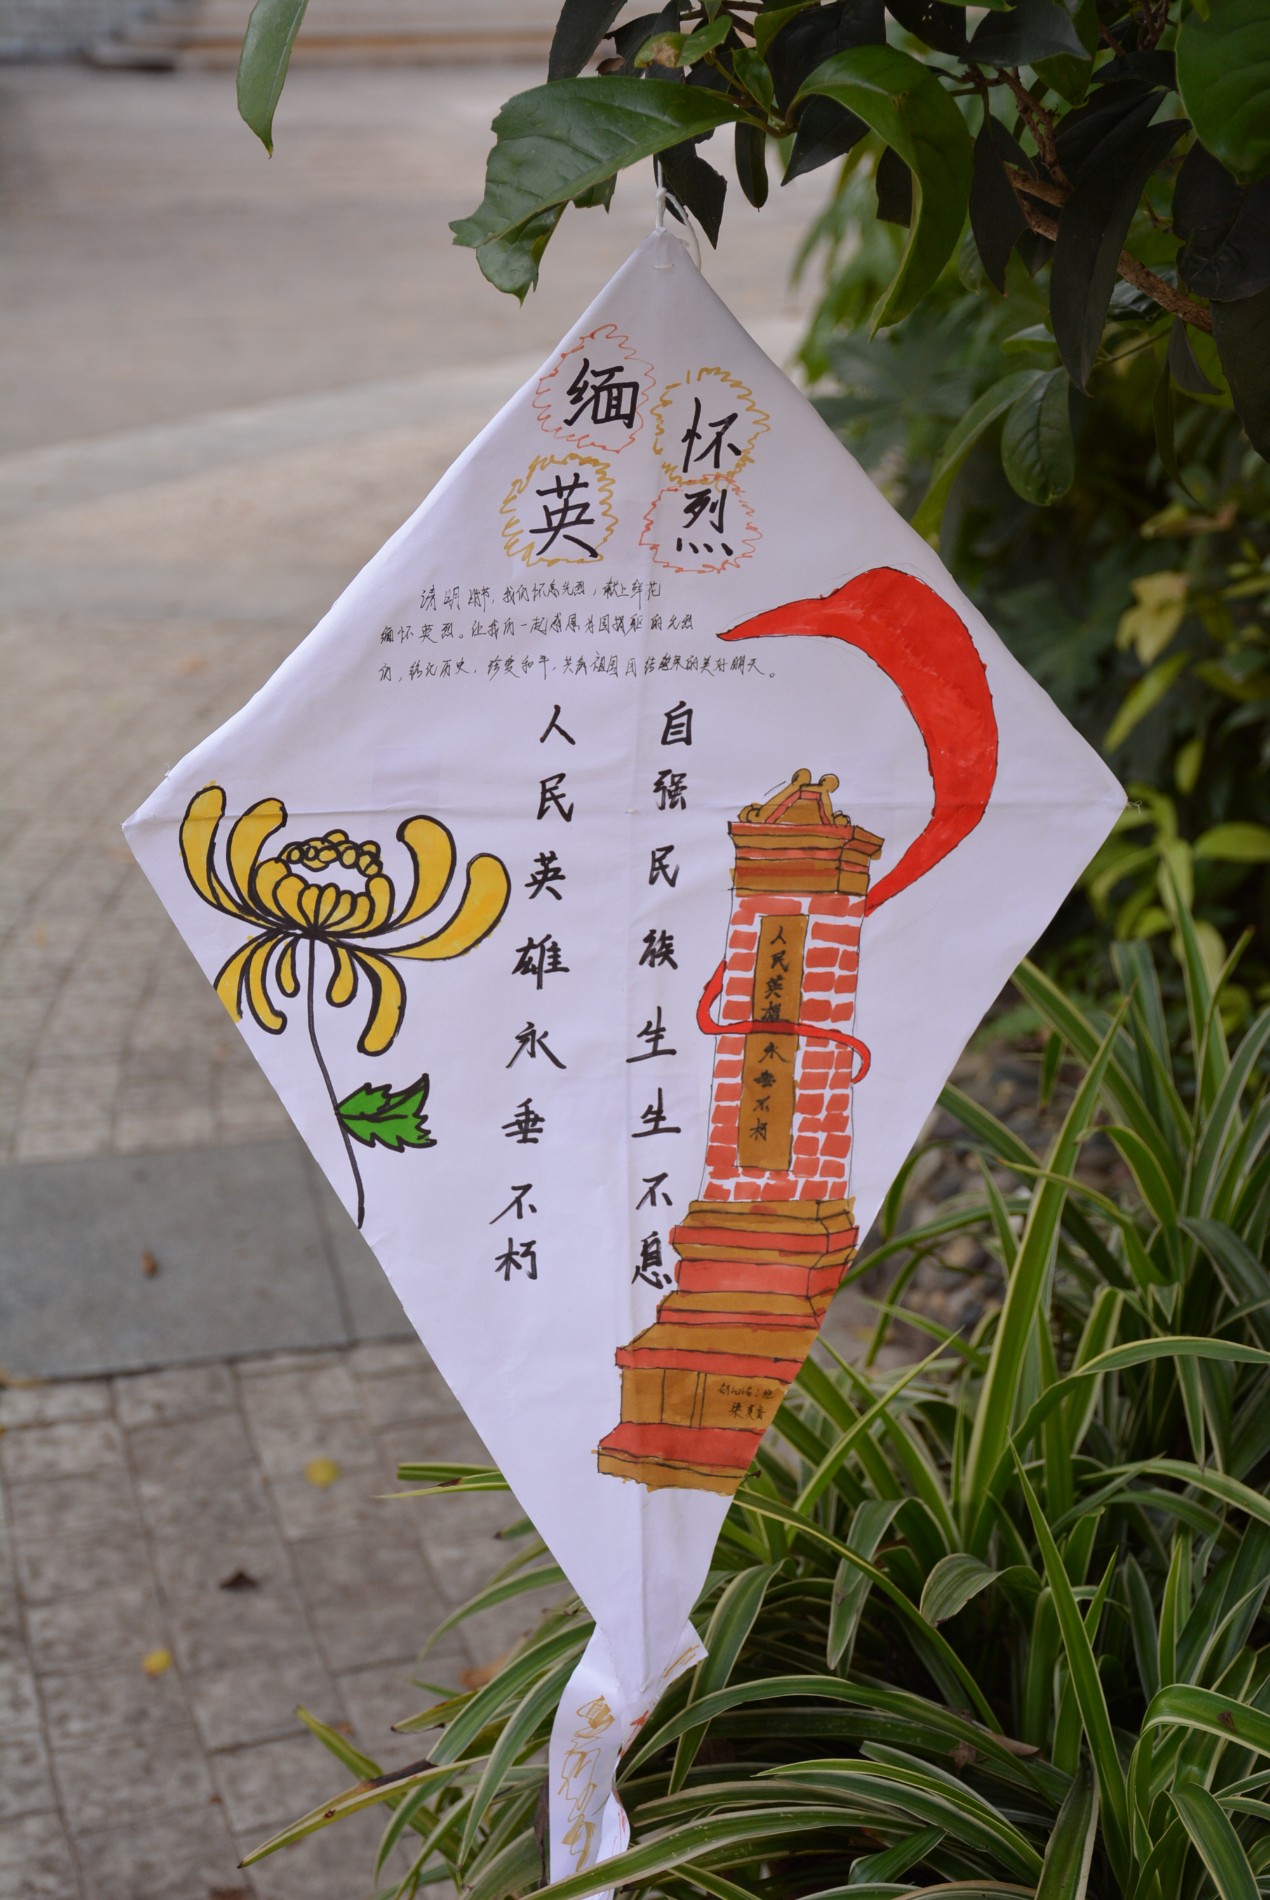 缅怀
英烈
清明时节，我们怀念先烈，献上鲜花
缅怀英烈。让我们一起感恩为国捐躯的先烈
们，铭记历史，珍爱和平，共筑祖国团结繁荣的美好明天。
自强民族生生不息
人民英雄永垂不朽
人民英雄永垂不朽